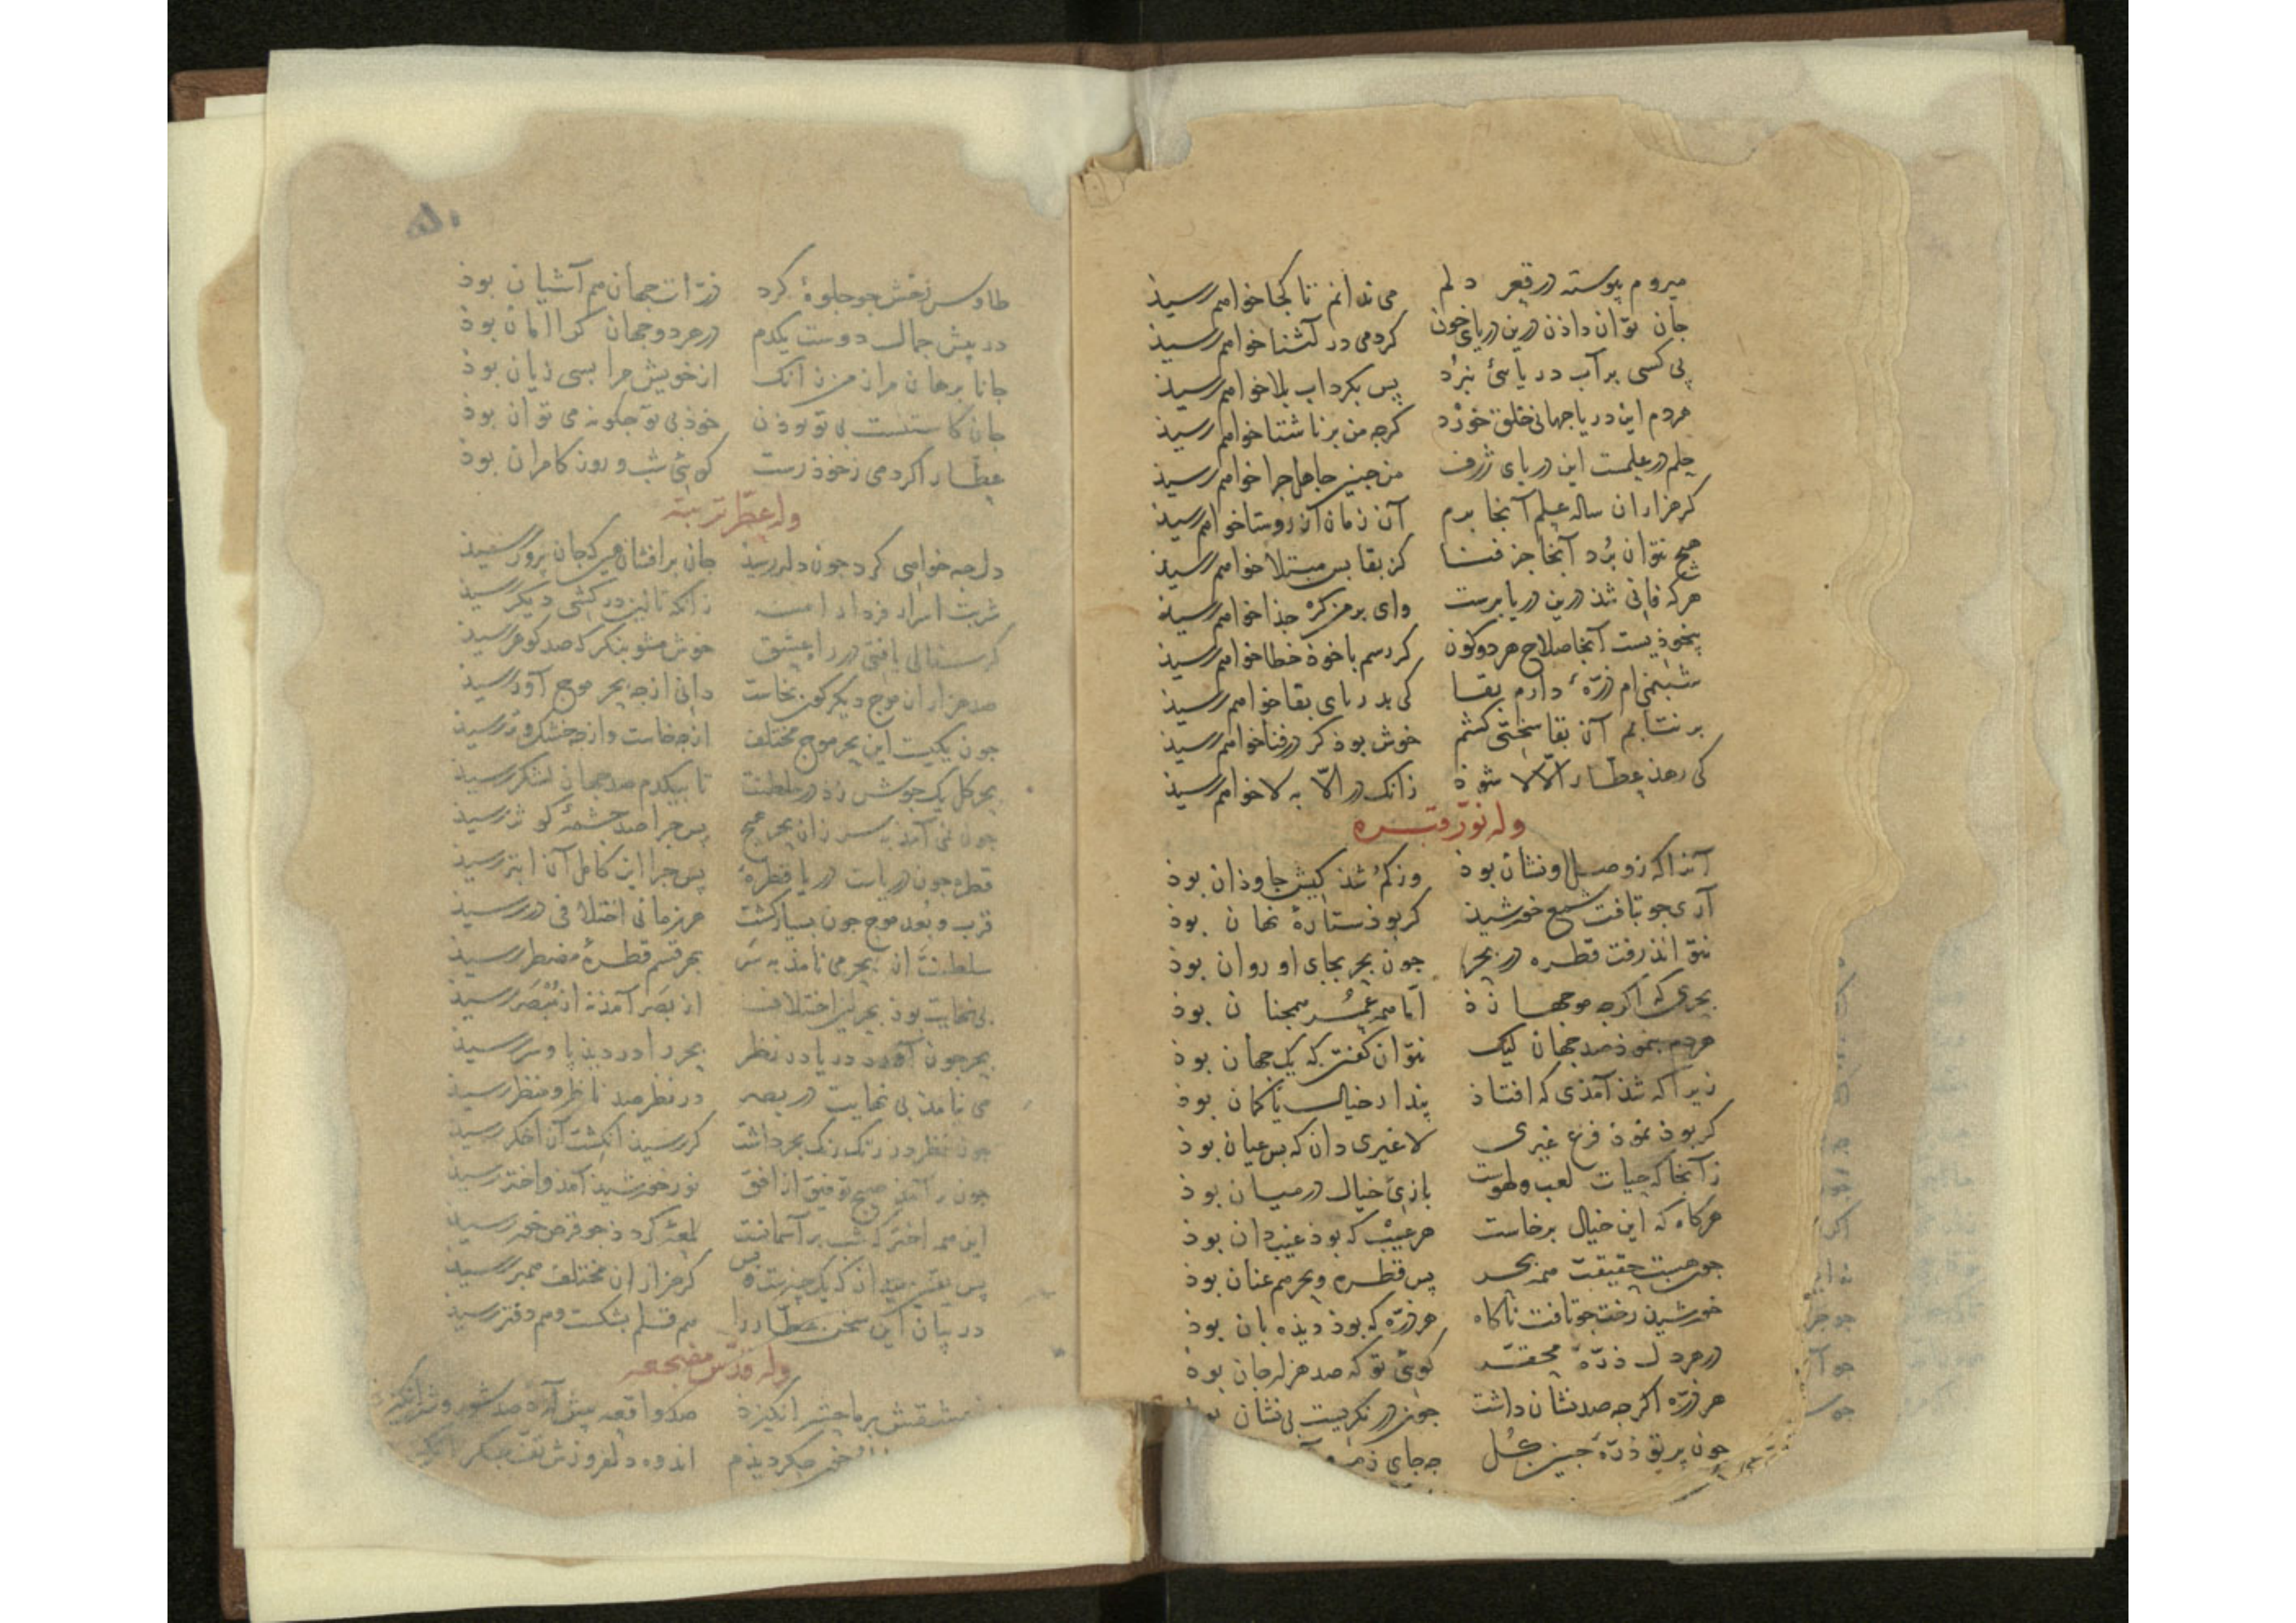 میروم پیوسته در قعر دلم می ندانم تا کجا خواهم رسیذ
جان توان داذن درین دریای خون کر دمی در آشنا خواهم رسیذ
پی کسی بر آب دریا کی نبرد پس بکرداب بلا خواهم رسیذ
هردم این دریا جهانی خلق خورد کرجه من بر ناشتا خواهم رسیذ
علم در علمست این دریای ژرف من جنین جاهل جرا خواهم رسیذ
کر هزاران ساله علم آنجا برم آن زمان آن روستا خواهم رسیذ
هیج نتوان برد آنجا جز فنا کز بقا بس مبتلا خواهم رسیذ
هرکه فانی شذ درین دریا برست وای بر من کر خذا خواهم رسیذ
بیخوذیست آنجا صلاح هر دو کون کر رسم با خوذ خطا خواهم رسیذ
شبنمی ام ذرّهٔ دارم بقا کی بدریای بقا خواهم رسیذ
بر نتابم آن بقا سختی کشم خوش بوذ کر در فنا خواهم رسیذ
کی رهذ عطّار الّا لا شوذ زانک در الّا به لا خواهم رسیذ
وله نوّر قبره
آنرا که ز وصل او نشان بوذ وز کم شذ کیش جاوذان بوذ
آری جو بتافت شمع خورشیذ کر بوذ ستارهٔ نهان بوذ
نتواند رفت قطره در بحر جون بحر بجای او روان بوذ
بحری که اکرجه موجها زذ امّا همه عمر همجنان بوذ
هردم بنموذ صد جهان لیک نتوان کفتن که یک جهان بوذ
زیرا که شذ آمذی که افتاذ پندار خیال یا کمان بوذ
کر بوذ نموذ فرع غیری لا غیری دان که بس عیان بوذ
زآنجا که حیات لعب و لهوست بازی خیال در میان بوذ
هر کاه که این خیال برخاست هر عیب که بوذ غیب دان بوذ
جون هست حقیقت همه بحر پس قطره و بحر هم عنان بوذ
خورشید رخت جو تافت ناکاه هر ذرّه که بوذ دیذه بان بوذ
در هر دل ذرّهٔ محقر کویی تو که صد هزار جان بوذ
هر ذرّه اکرجه صد نشان داشت جون در نکریست بی نشان
جون پرتو ذرّهٔ جنین کل جه جای
۵۰
طاوس رخش جو جلوهٔ کرد ذرّات جهان هم آشیان بوذ
در پیش جمال دوست یکدم در هر دو جهان کرا امان بوذ
جانا برهان مرا ز من زانک از خویش مرا بسی زیان بوذ
جان کاستنست بی تو بوذن خوذ بی تو جکونه می توان بوذ
عطّار اکر دمی ز خوذ رست کویی شب و روز کامران بوذ
وله عطّر تربته
دل جه خواهی کرد جون دلبر رسیذ جان برافشان هین که جان پرور رسیذ
شربت اسرار فردا را زانکه تا این درکشی دیکر رسیذ
کر سفالی یافتی در راه عشق خوش مشو بنکر که صد کوهر رسیذ
صد هزاران موج دیکرکون بخاست دانی از جه بحر موج آور رسیذ
جون یکیست این بحر موج مختلف از جه خاست و از جه خشک و تر رسیذ
بحر کل یک جوش زذ در سلطنت تا بیکدم صد جهان لشکر رسیذ
جون نمی آمذ به سر زان بحر هیج پس جرا صد جشمهٔ کوثر رسیذ
قطره جون دریاست دریا قطرهٔ پس جرا این کامل آن ابتر رسیذ
قرب و بعد موج جون بسیار کشت هر زمانی اختلافی در رسیذ
سلطنت از بحر می نامذ به سر بحر قسم قطرهٔ مضطر رسیذ
بی نهایت بوذ بحر این اختلاف از بصر آمذ نه از مبصر رسیذ
بحر جون آورد دریا در نظر بحر را در دیذ پا و سر رسیذ
می نیامذ بی نهایت در بصر در نظر صد ناظر و منظر رسیذ
جون نظر در رنک رنک بحر داشت کر رسیذ انکشت آن اخکر رسیذ
جون برآمذ صبح توفیق از افق نور خورشیذ آمذ و اختر رسیذ
این همه اختر که شب بر آسمانست لمعهٔ کردذ جو قرص خور رسیذ
پس یقین میدان که یک جیزست و بس کر هزاران مختلف همبر رسیذ
در بیان این سخن عطّار را هم قلم بشکست و هم دفتر رسیذ
وله قدّس مضجعه
عشقش بر ما حشر انکیزذ صد واقعه پیش آرذ صد شور و شر انکیزذ
جکر دیذم اندوه دلفروزش تفّ جکر انکیزذ